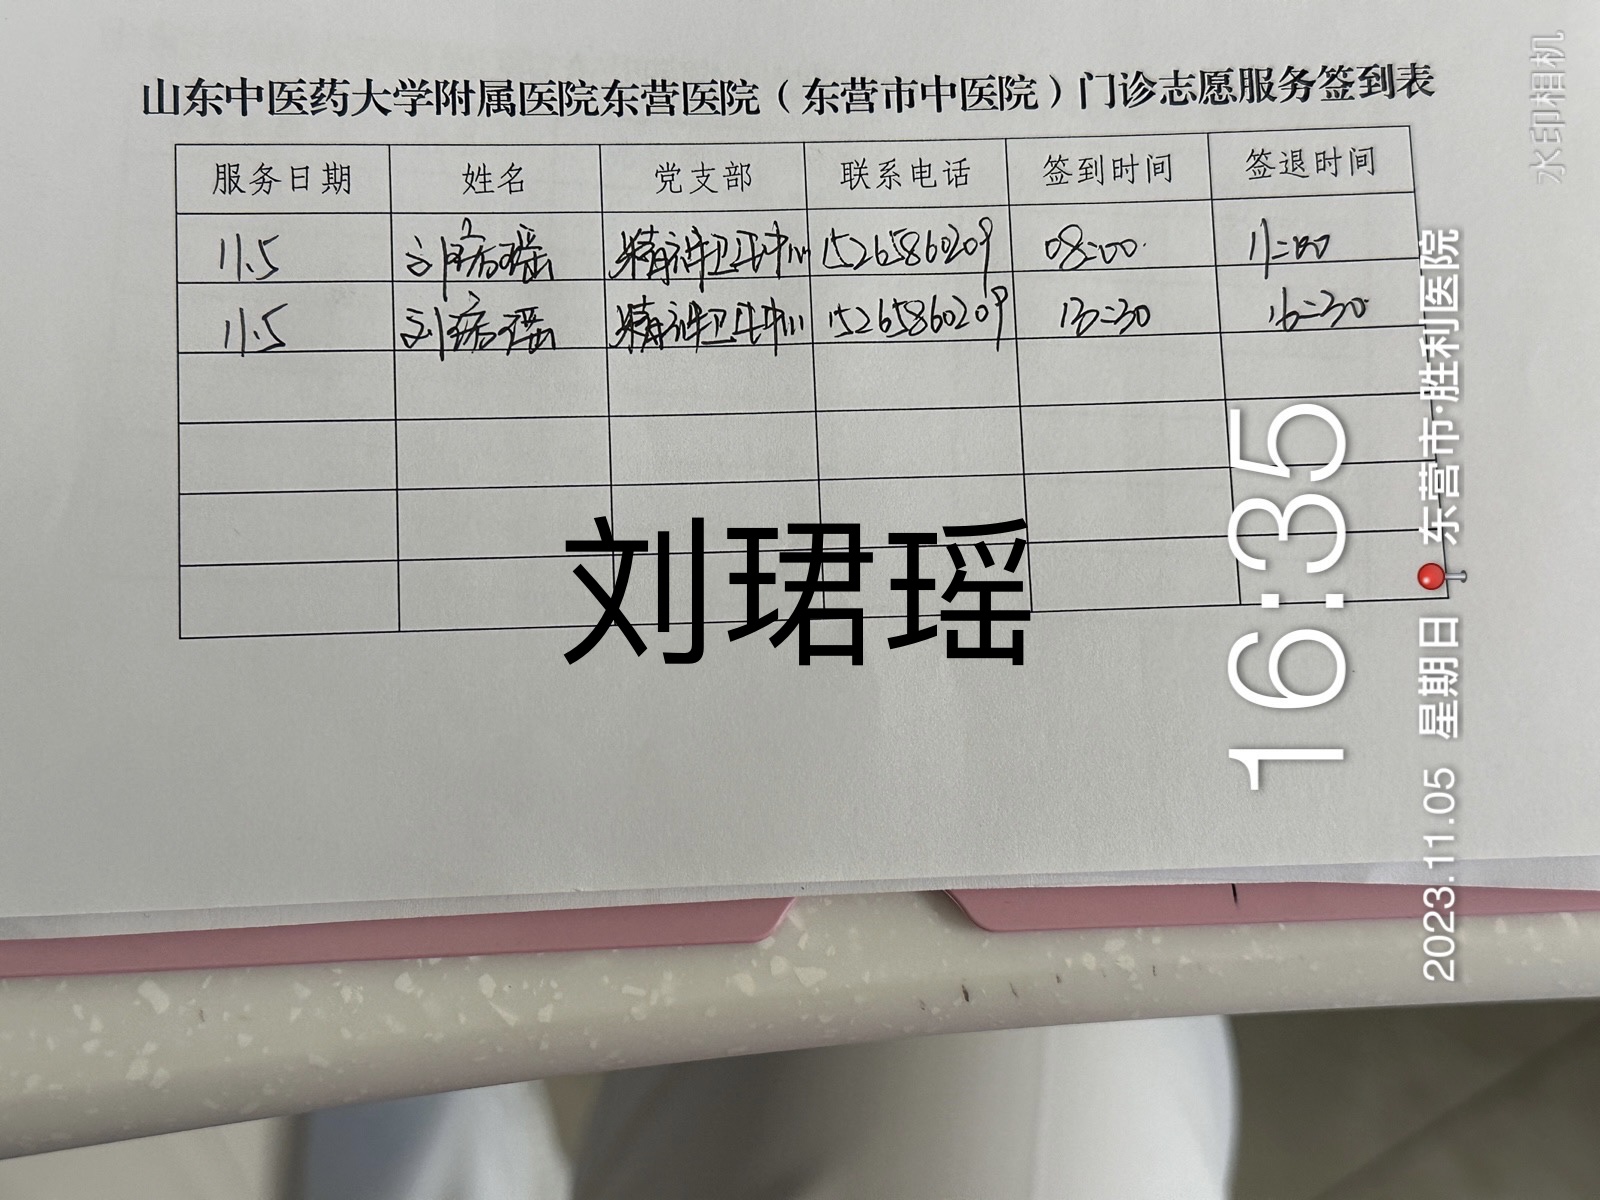 山东中医药大学附属医院东营医院（东营市中医院）门诊志愿服务签到表
服务日期 姓名 党支部 联系电话 签到时间 签退时间
11.5 刘珺瑶 精神卫生中心 15265860209 08:00 11:00
11.5 刘珺瑶 精神卫生中心 15265860209 13:30 16:30
刘珺瑶
16:35
2023.11.05 星期日 东营市·胜利医院
水印相机